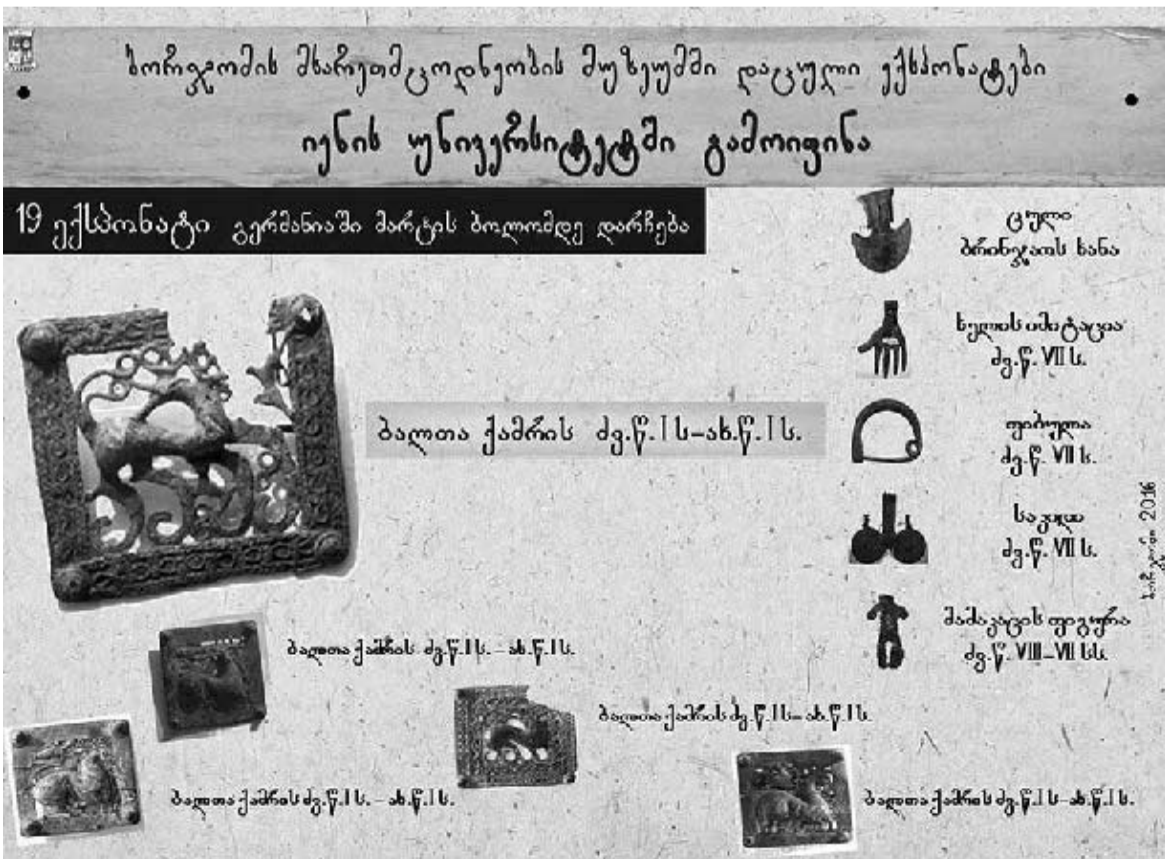 ბორჯომის მხარეთმცოდნეობის მუზეუმში დაცული ექსპონატები
იენის უნივერსიტეტში გამოიფინა
19 ექსპონატი გერმანიაში მარტის ბოლომდე დარჩება
ცული
ბრინჯაოს ხანა
ხელის იმიტაცია
ძვ.წ. VII ს.
ფიბულა
ძვ.წ. VII ს.
საკიდი
ძვ.წ. VII ს.
მამაკაცის ფიგურა
ძვ.წ. VIII-VII სს.
ბალთა ქამრის ძვ.წ. I ს-ახ.წ. I ს.
ბალთა ქამრის ძვ.წ. I ს. - ახ.წ. I ს.
ბალთა ქამრის ძვ.წ. I ს- ახ.წ. I ს.
ბალთა ქამრის ძვ.წ. I ს. - ახ.წ. I ს.
ბალთა ქამრის ძვ.წ. I ს-ახ.წ. I ს.
ბორჯომი 2016